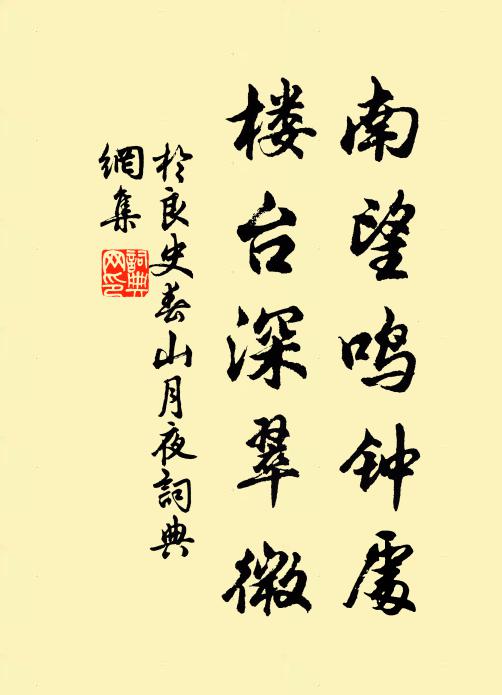 南望鸣钟處
楼台深翠微
於良史春山月夜詞典
網集
詞典
网印